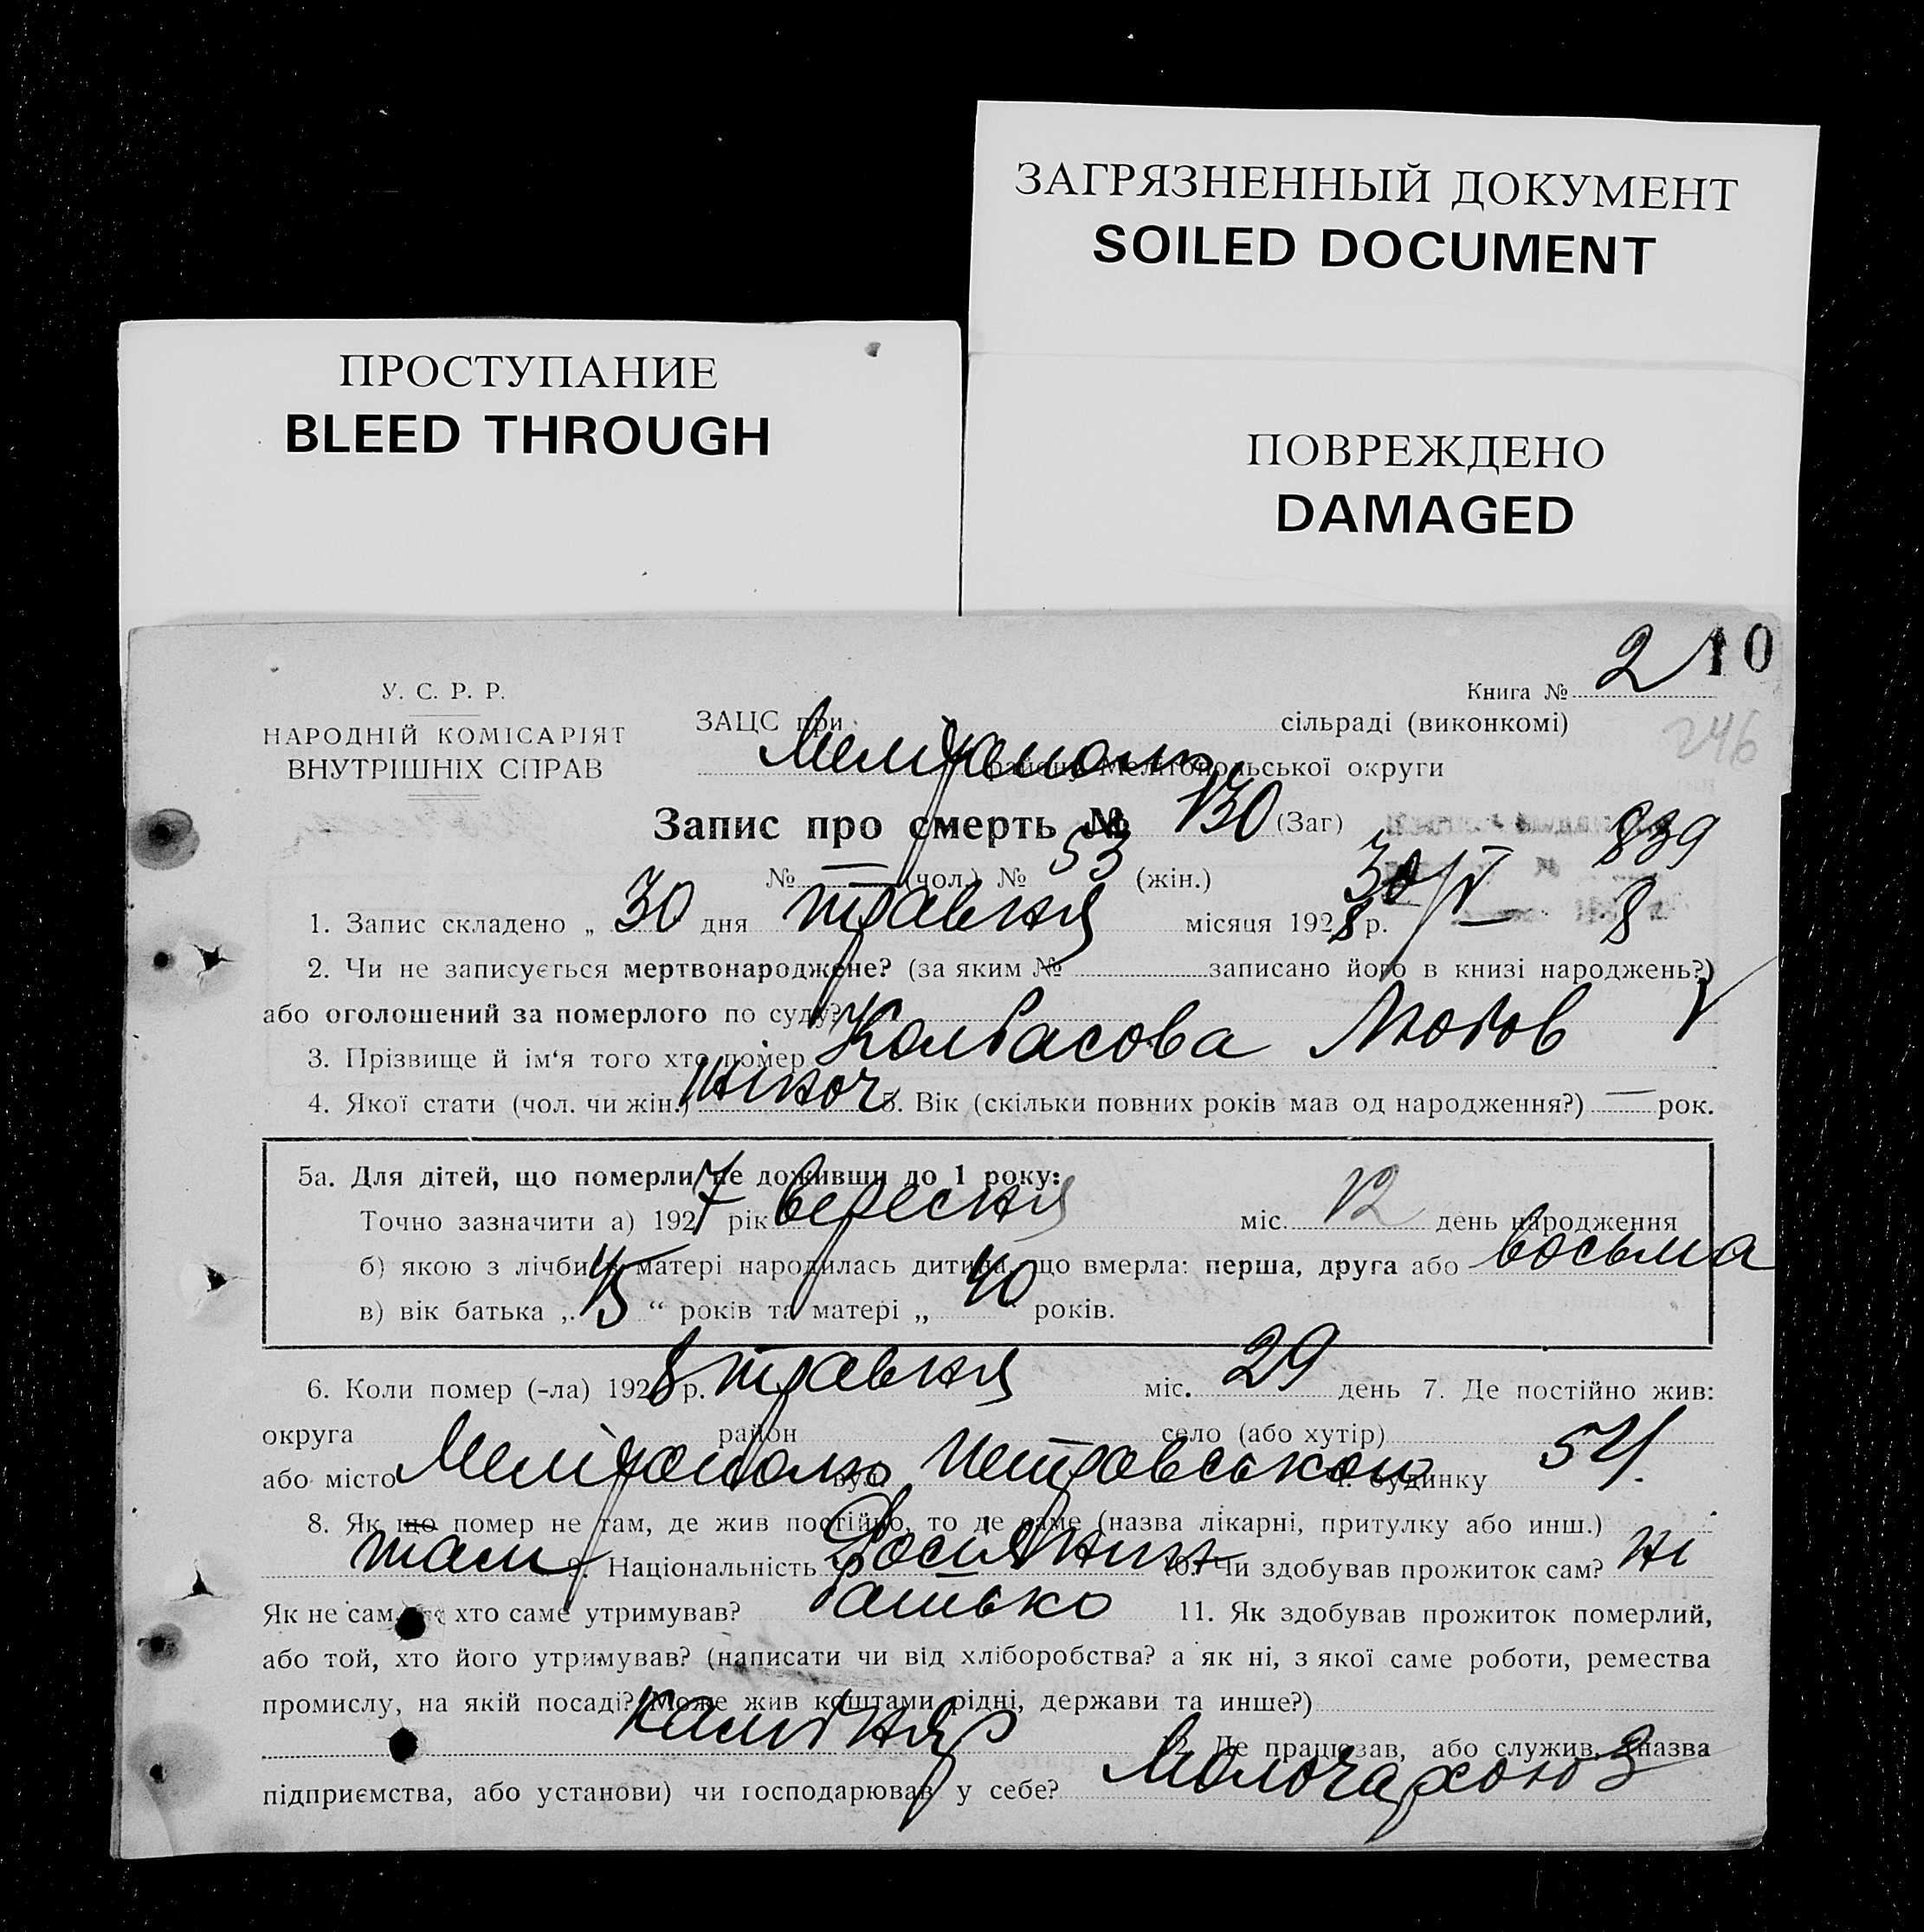 ЗАГРЯЗНЕННЫЙ ДОКУМЕНТ
SOILED DOCUMENT
ПРОСТУПАНИЕ
BLEED THROUGH
ПОВРЕЖДЕНО
DAMAGED
10
У. С. Р. Р.
НАРОДНІЙ КОМІСАРІЯТ
ВНУТРІШНІХ СПРАВ
Книга № 2
246
ЗАЦС при сільраді (виконкомі)
Мелітополь району Мелітопольської округи
Запис про смерть № 130 (Заг) 839
№ — (чол.) № 53 (жін.) 30/V 8
1. Запис складено „ 30 дня травня місяця 1928 р.
2. Чи не записується мертвонароджене? (за яким № записано його в книзі народжень?)
або оголошений за померлого по суду?
3. Прізвище й ім‘я того хто помер Колбасова Любов
4. Якої стати (чол. чи жін.) жіноч 5. Вік (скільки повних років мав од народження?) — рок.
5а. Для дітей, що померли не доживши до 1 року:
Точно зазначити а) 1927 рік вересня міс. 12 день народження
б) якою з лічби у матері народилась дитина, що вмерла: перша, друга або восьма
в) вік батька „ 45 “ років та матері „ 40 років.
6. Коли помер (-ла) 1928 р. травня міс. 29 день 7. Де постійно жив:
округа район село (або хутір)
або місто Мелітополь вул. Петровського буд​инку 54
8. Як що помер не там, де жив постійно, то де саме (назва лікарні, притулку або инш.)
там 9. Національність 10. Чи здобував прожиток сам? ні
Як не сам, хто саме утримував? батько 11. Як здобував прожиток померлий,
або той, хто його утримував? (написати чи від хліборобства? а як ні, з якої саме роботи, ремества
промислу, на якій посаді? Може жив коштами рідні, держави та инше?)
каменяр Де працював, або служив, (назва
підприємства, або установи) чи господарював у себе?